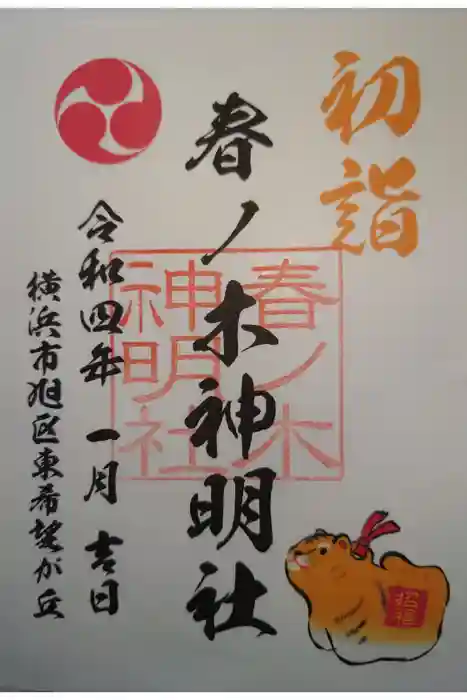 初詣
春ノ木神明社
春ノ木
神明社
令和四年 一月 吉日
横浜市旭区東希望が丘
招福